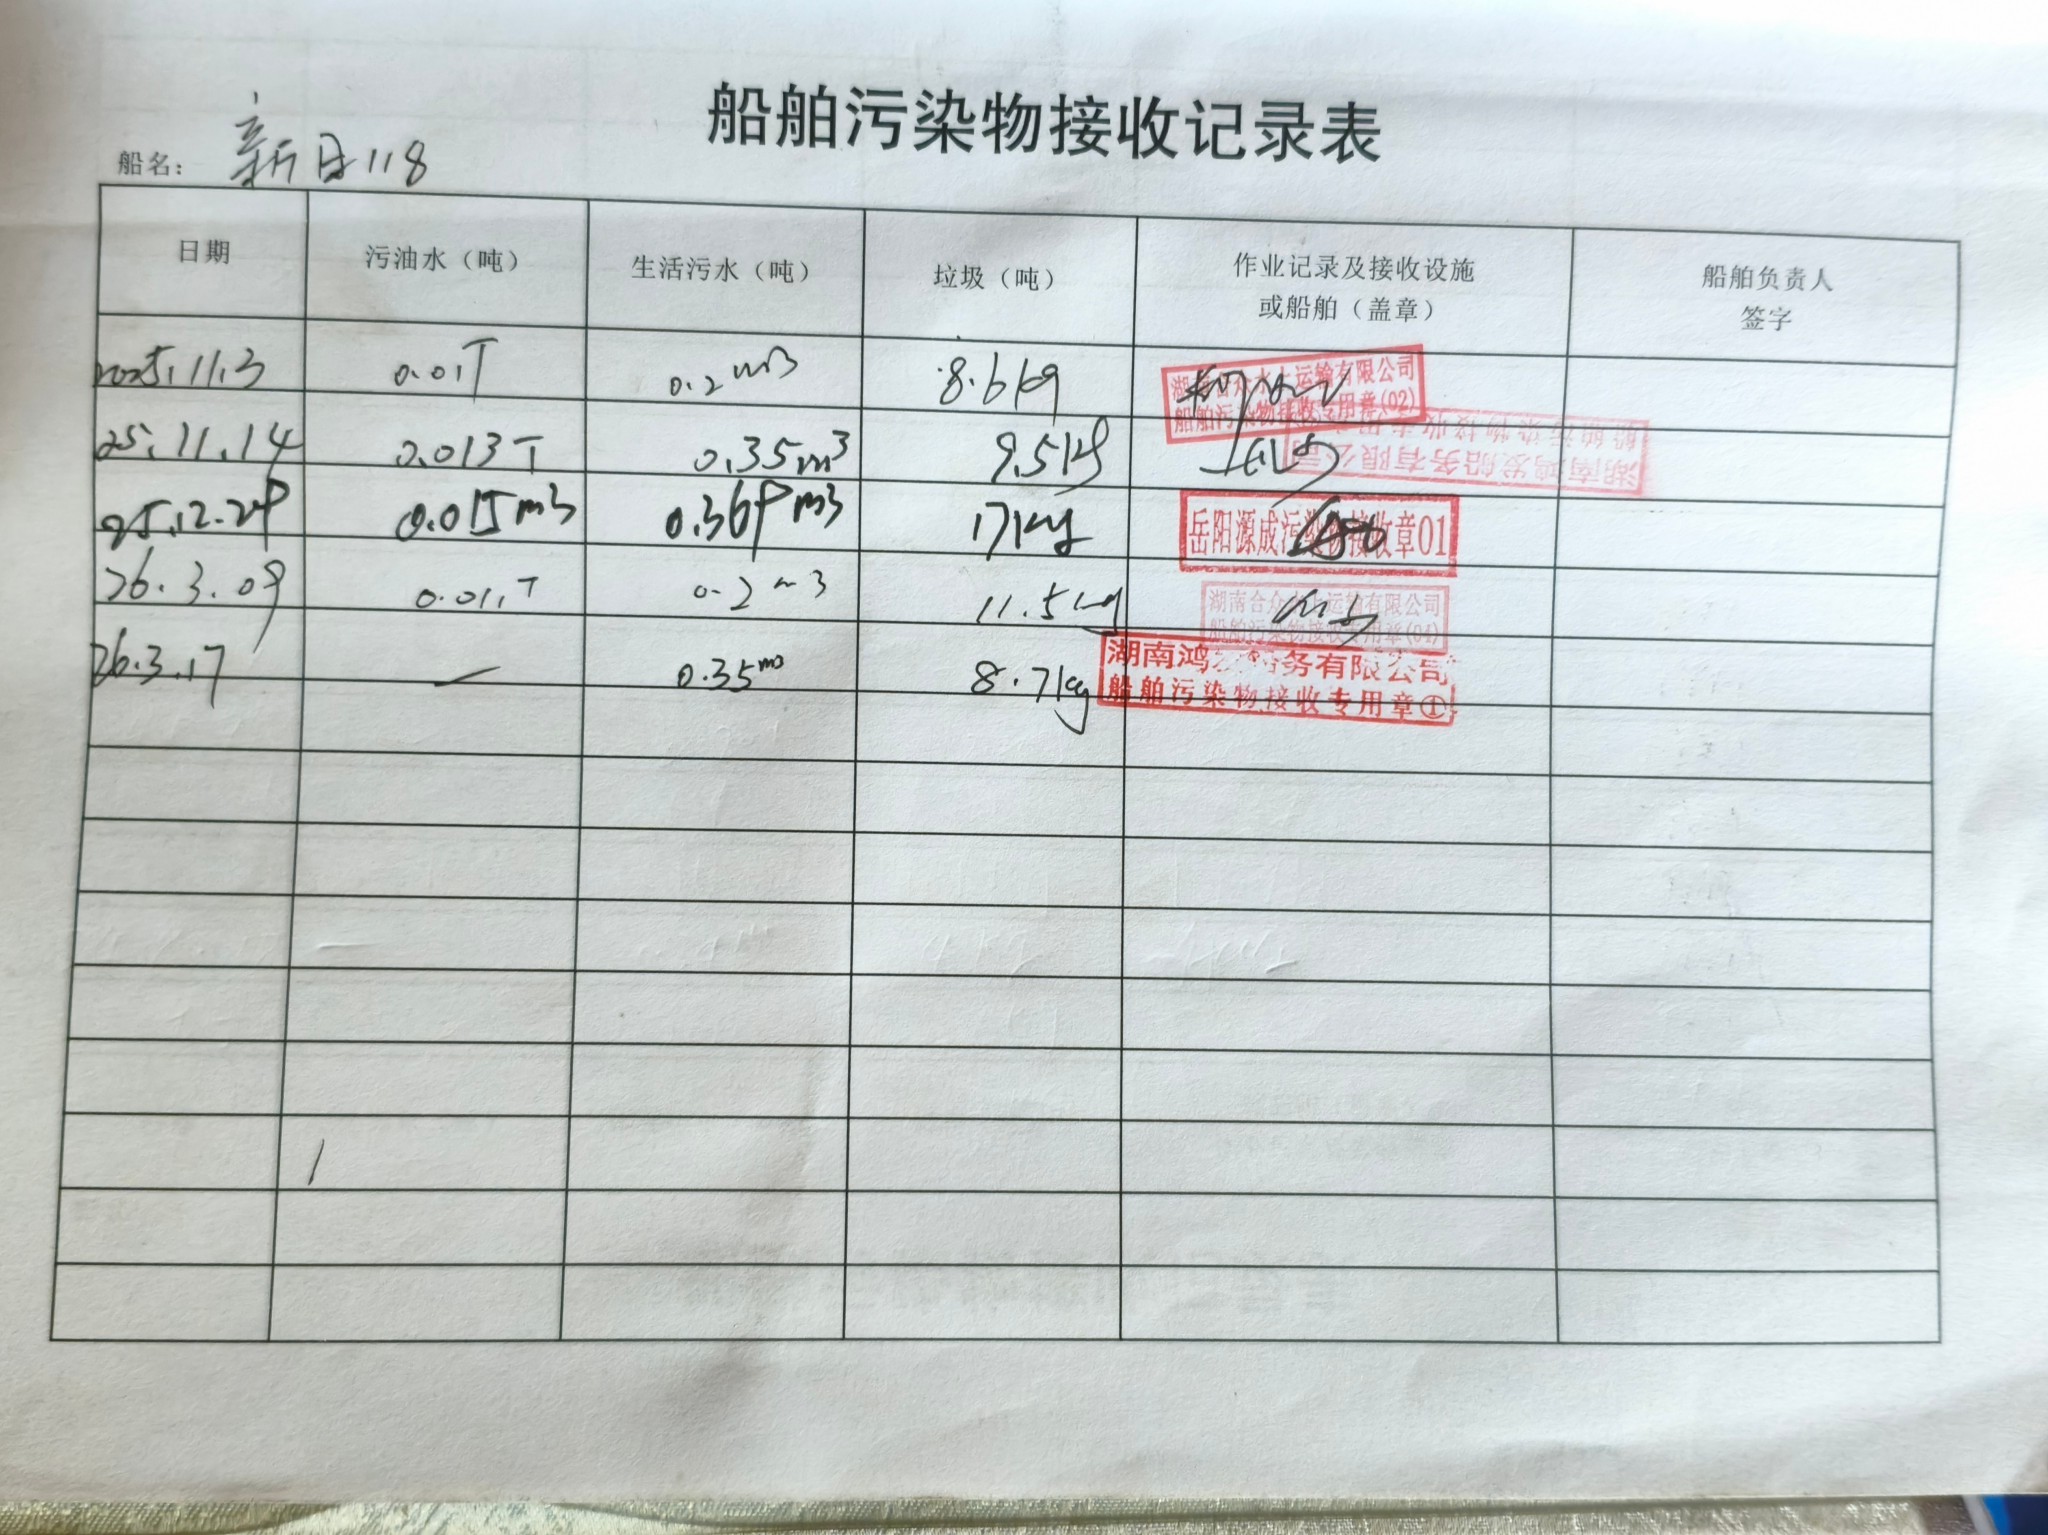 船舶污染物接收记录表
船名： 新日118
日期 污油水（吨） 生活污水（吨） 垃圾（吨） 作业记录及接收设施 船舶负责人
或船舶（盖章） 签字
2025.11.3 0.01T 0.2m3 8.6kg
湖南合众水上运输有限公司
船舶污染物接收专用章(02)
25.11.14 0.013T 0.35m3 9.5kg
湖南鸿发船务有限公司
船舶污染物接收专用章
25.12.29 0.015m3 0.369m3 17kg 岳阳源成污染物接收章01
26.3.09 0.01T 0.2m3 11.5kg
湖南合众水上运输有限公司
船舶污染物接收专用章(04)
26.3.17 — 0.35m3 8.7kg
湖南鸿发船务有限公司
船舶污染物接收专用章①